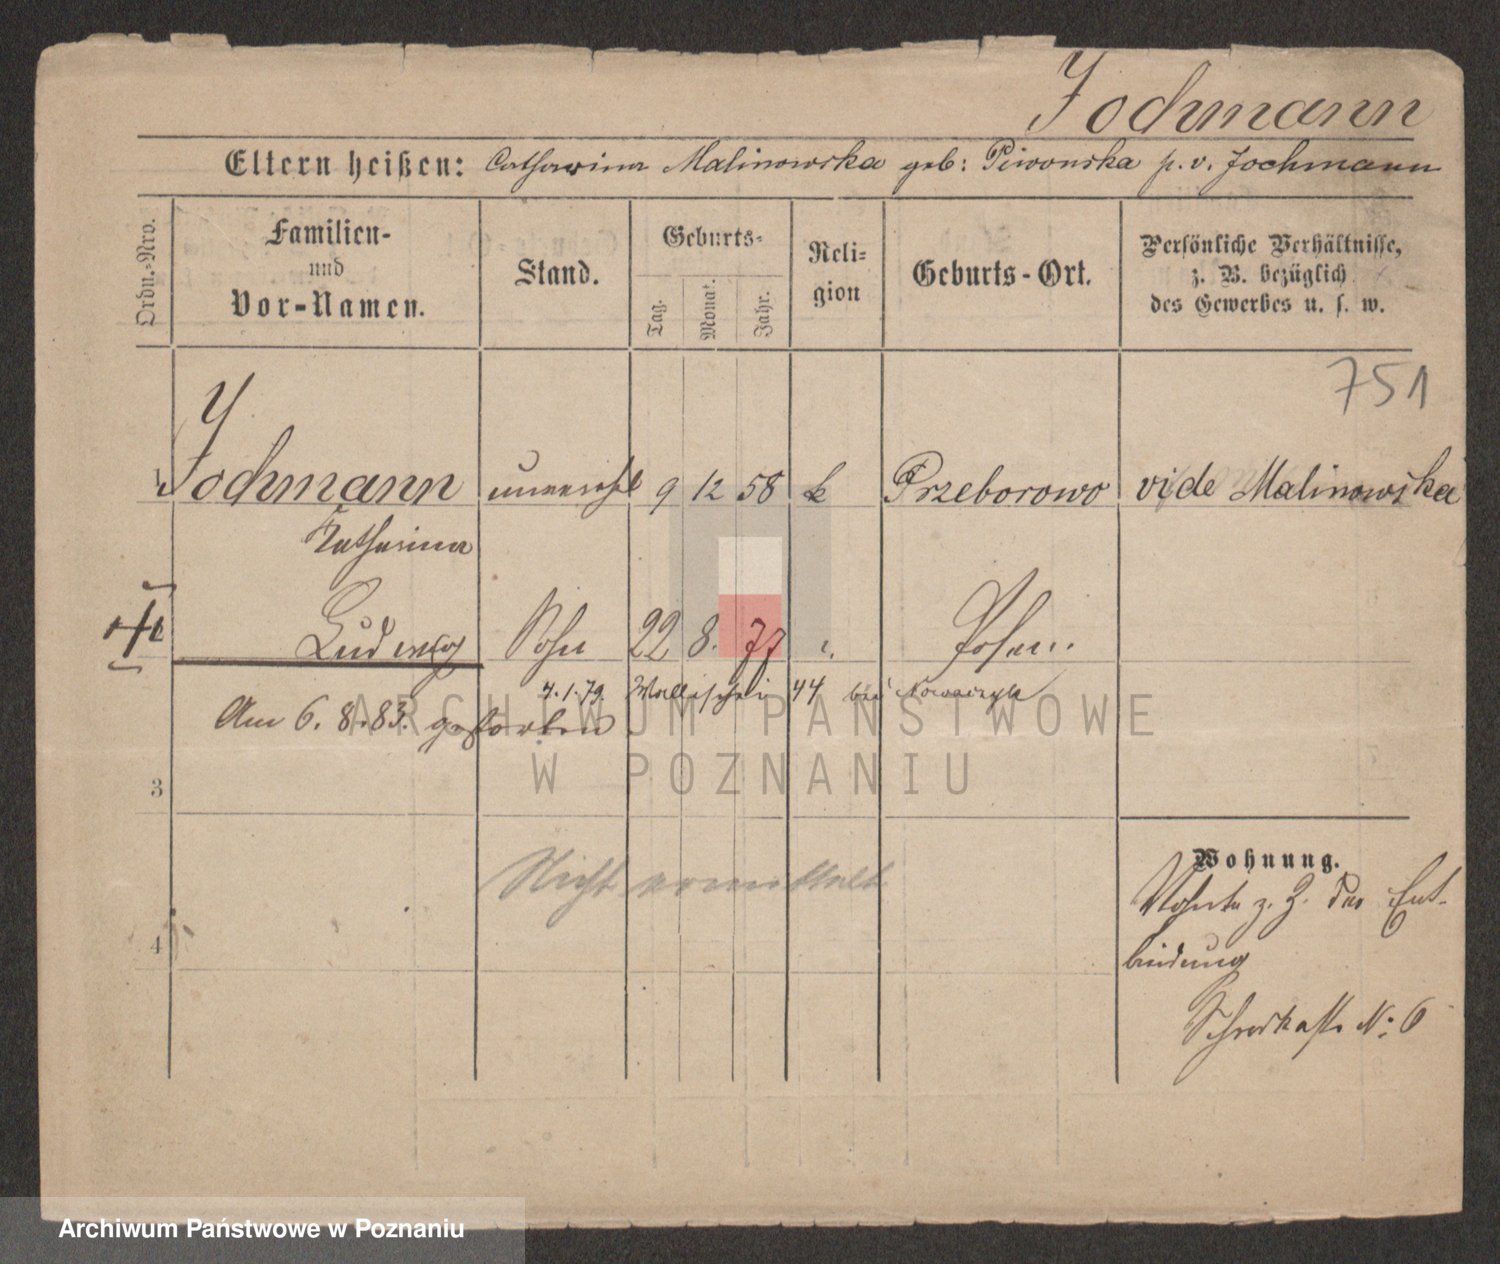 Jochmann
Eltern heißen: Catharina Malinowska geb: Piwonska p. v. Jochmann
Ordn.-Nro.
Familien-
und
Vor-Namen.
Stand.
Geburts-
Tag.
Monat.
Jahr.
Reli-
gion
Geburts-Ort.
Persönliche Verhältnisse,
z. B. bezüglich
des Gewerbes u. s. w.
751
1 Jochmann unverehl 9 12 58 k Przeborowo vide Malinowska
Katharina
Ludwig Sohn 22 8. 77 Posen.
4.1.79. Wallischei 44 bei Nowaczyk
Am 6. 8. 83. gestorben
3
Wohnung.
Nicht vermittelt
Wohnte z. Z. der Ent-
4
bindung
Schrodkastr. No: 6
ARCHIWUM PAŃSTWOWE
W POZNANIU
Archiwum Państwowe w Poznaniu